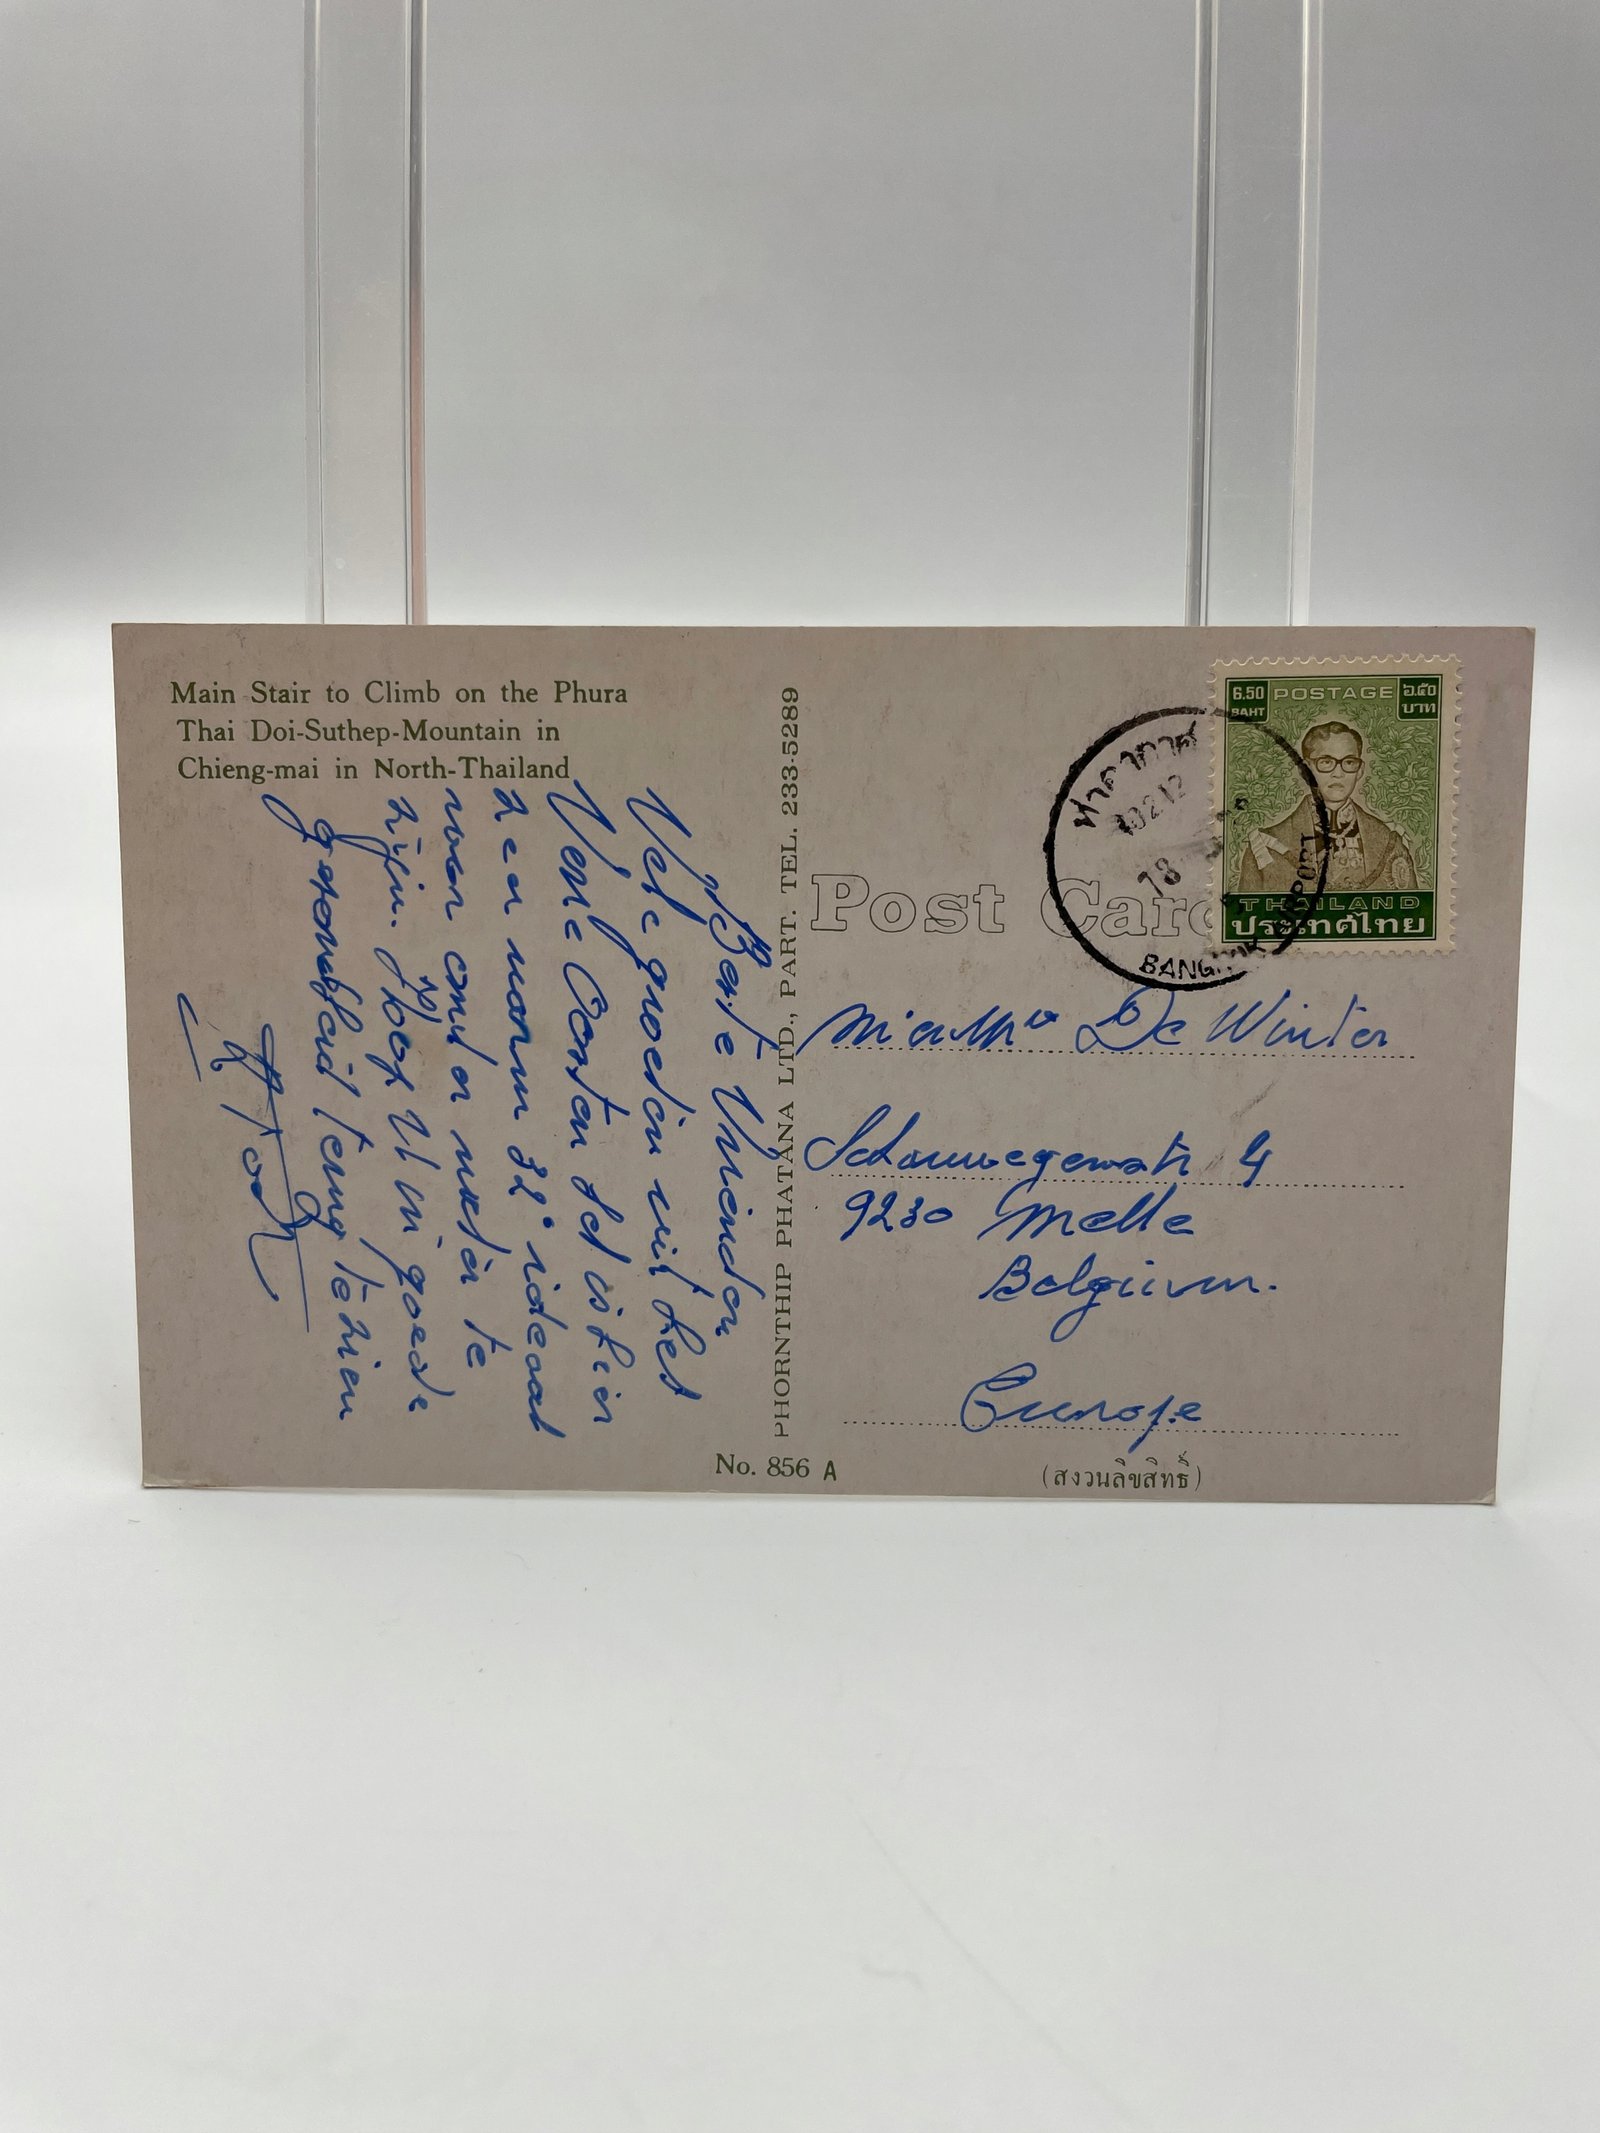 Main Stair to Climb on the Phura
Thai Doi-Suthep-Mountain in
Chieng-mai in North-Thailand
Beste Vrienden
Vele groeten uit het
Verre Oosten het is hier
zeer warm 32° ideaal
weer om er rustig te
zijn. Hoop U in goede
gezondheid terug te zien
PHORNTHIP PHATANA LTD., PART. TEL. 233-5289
Post Card
6.50 POSTAGE ๖.๕๐
BAHT บาท
THAILAND
ประเทศไทย
ท่าอากาศ
18
BANGKOK AIRPORT
De Winter
4
9230 Melle
Belgium.
Europe
No. 856 A
(สงวนลิขสิทธิ์)